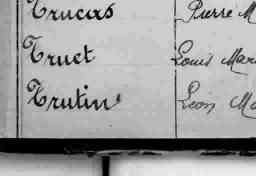 Trucas Pierre M
Truet Louis Mar
Trutin Léon Ma